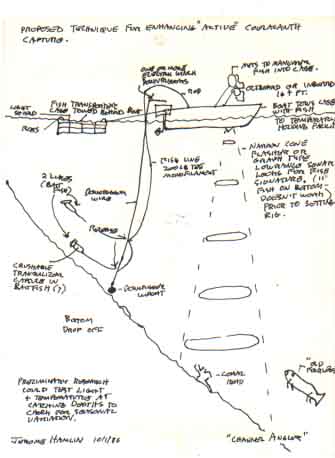 PROPOSED TECHNIQUE FOR ENHANCING "ACTIVE" COELACANTH
CAPTURE.
ONE OR MORE
ELECTRIC WINCH
DOWNRIGGERS
ROD
NETS TO TRANSFER
FISH INTO CAGE.
OUTBOARD OR INBOARD
16+ FT.
BOAT TOWS CAGE
WITH FISH
TO TEMPORARY
HOLDING FACILITY
LIGHT
SHIELD
FISH TRANSPORTING
CAGE TOWED BEHIND BOAT
RODS
FISH LINE
200 LB TEST
MONOFILAMENT
DOWNRIGGER
WIRE
2 LURES
(BAIT
FISH)
RELEASE
CRUSHABLE
TRANQUILIZER
CAPSULE IN
BAITFISH (?)
DOWNRIGGER
WEIGHT
BOTTOM
DROP OFF
NARROW CONE
FLASHING OR
GRAPH TYPE
LOWRANCE SONAR
LOOKS FOR FISH
SIGNATURE, (IF
FISH ON BOTTOM -
DOESN'T WORK)
PRIOR TO SETTING
RIG.
CORAL
HEAD
"OLD
FOURLEGS"
PRELIMINARY RESEARCH
COULD TEST LIGHT
+ TEMPERATURES AT
CATCHING DEPTHS TO
CHECK FOR SEASONAL
VARIATION.
JEROME HAMLIN 10/1/86